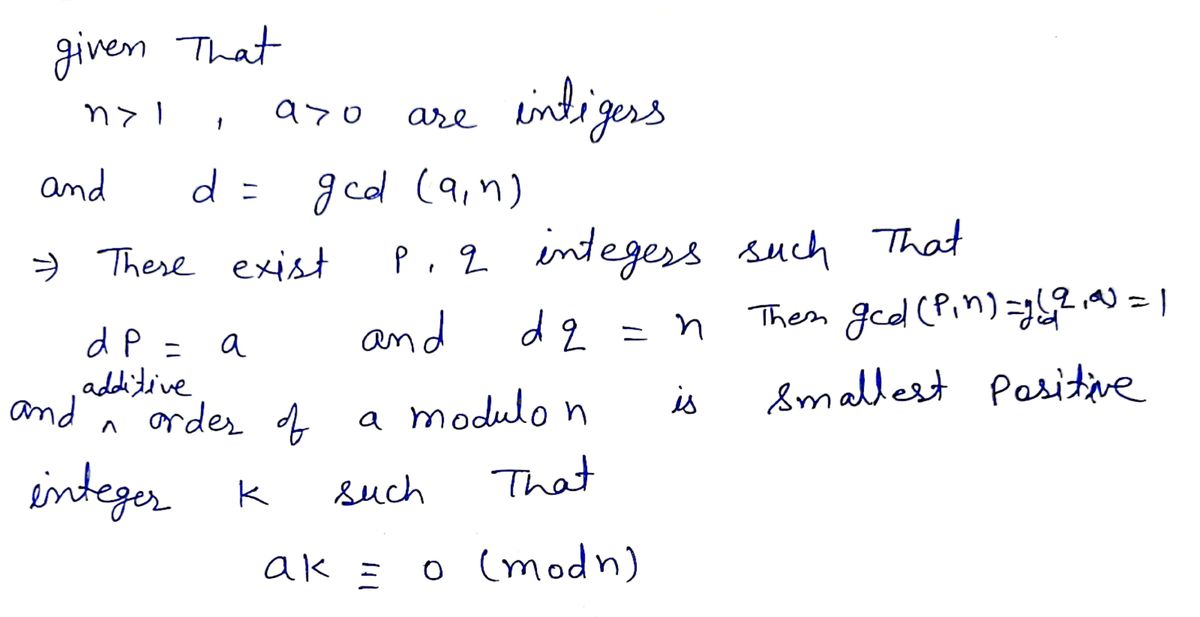 given That
n > 1 , a > 0 are intigers
and d = gcd (a, n)
⇒ There exist P, q integers such That
dP = a and dq = n Then gcd (P, n) = gcd(q, a) = 1
and ^ additive order of a modulo n is smallest Positive
integer K such That
aK ≡ 0 (mod n)